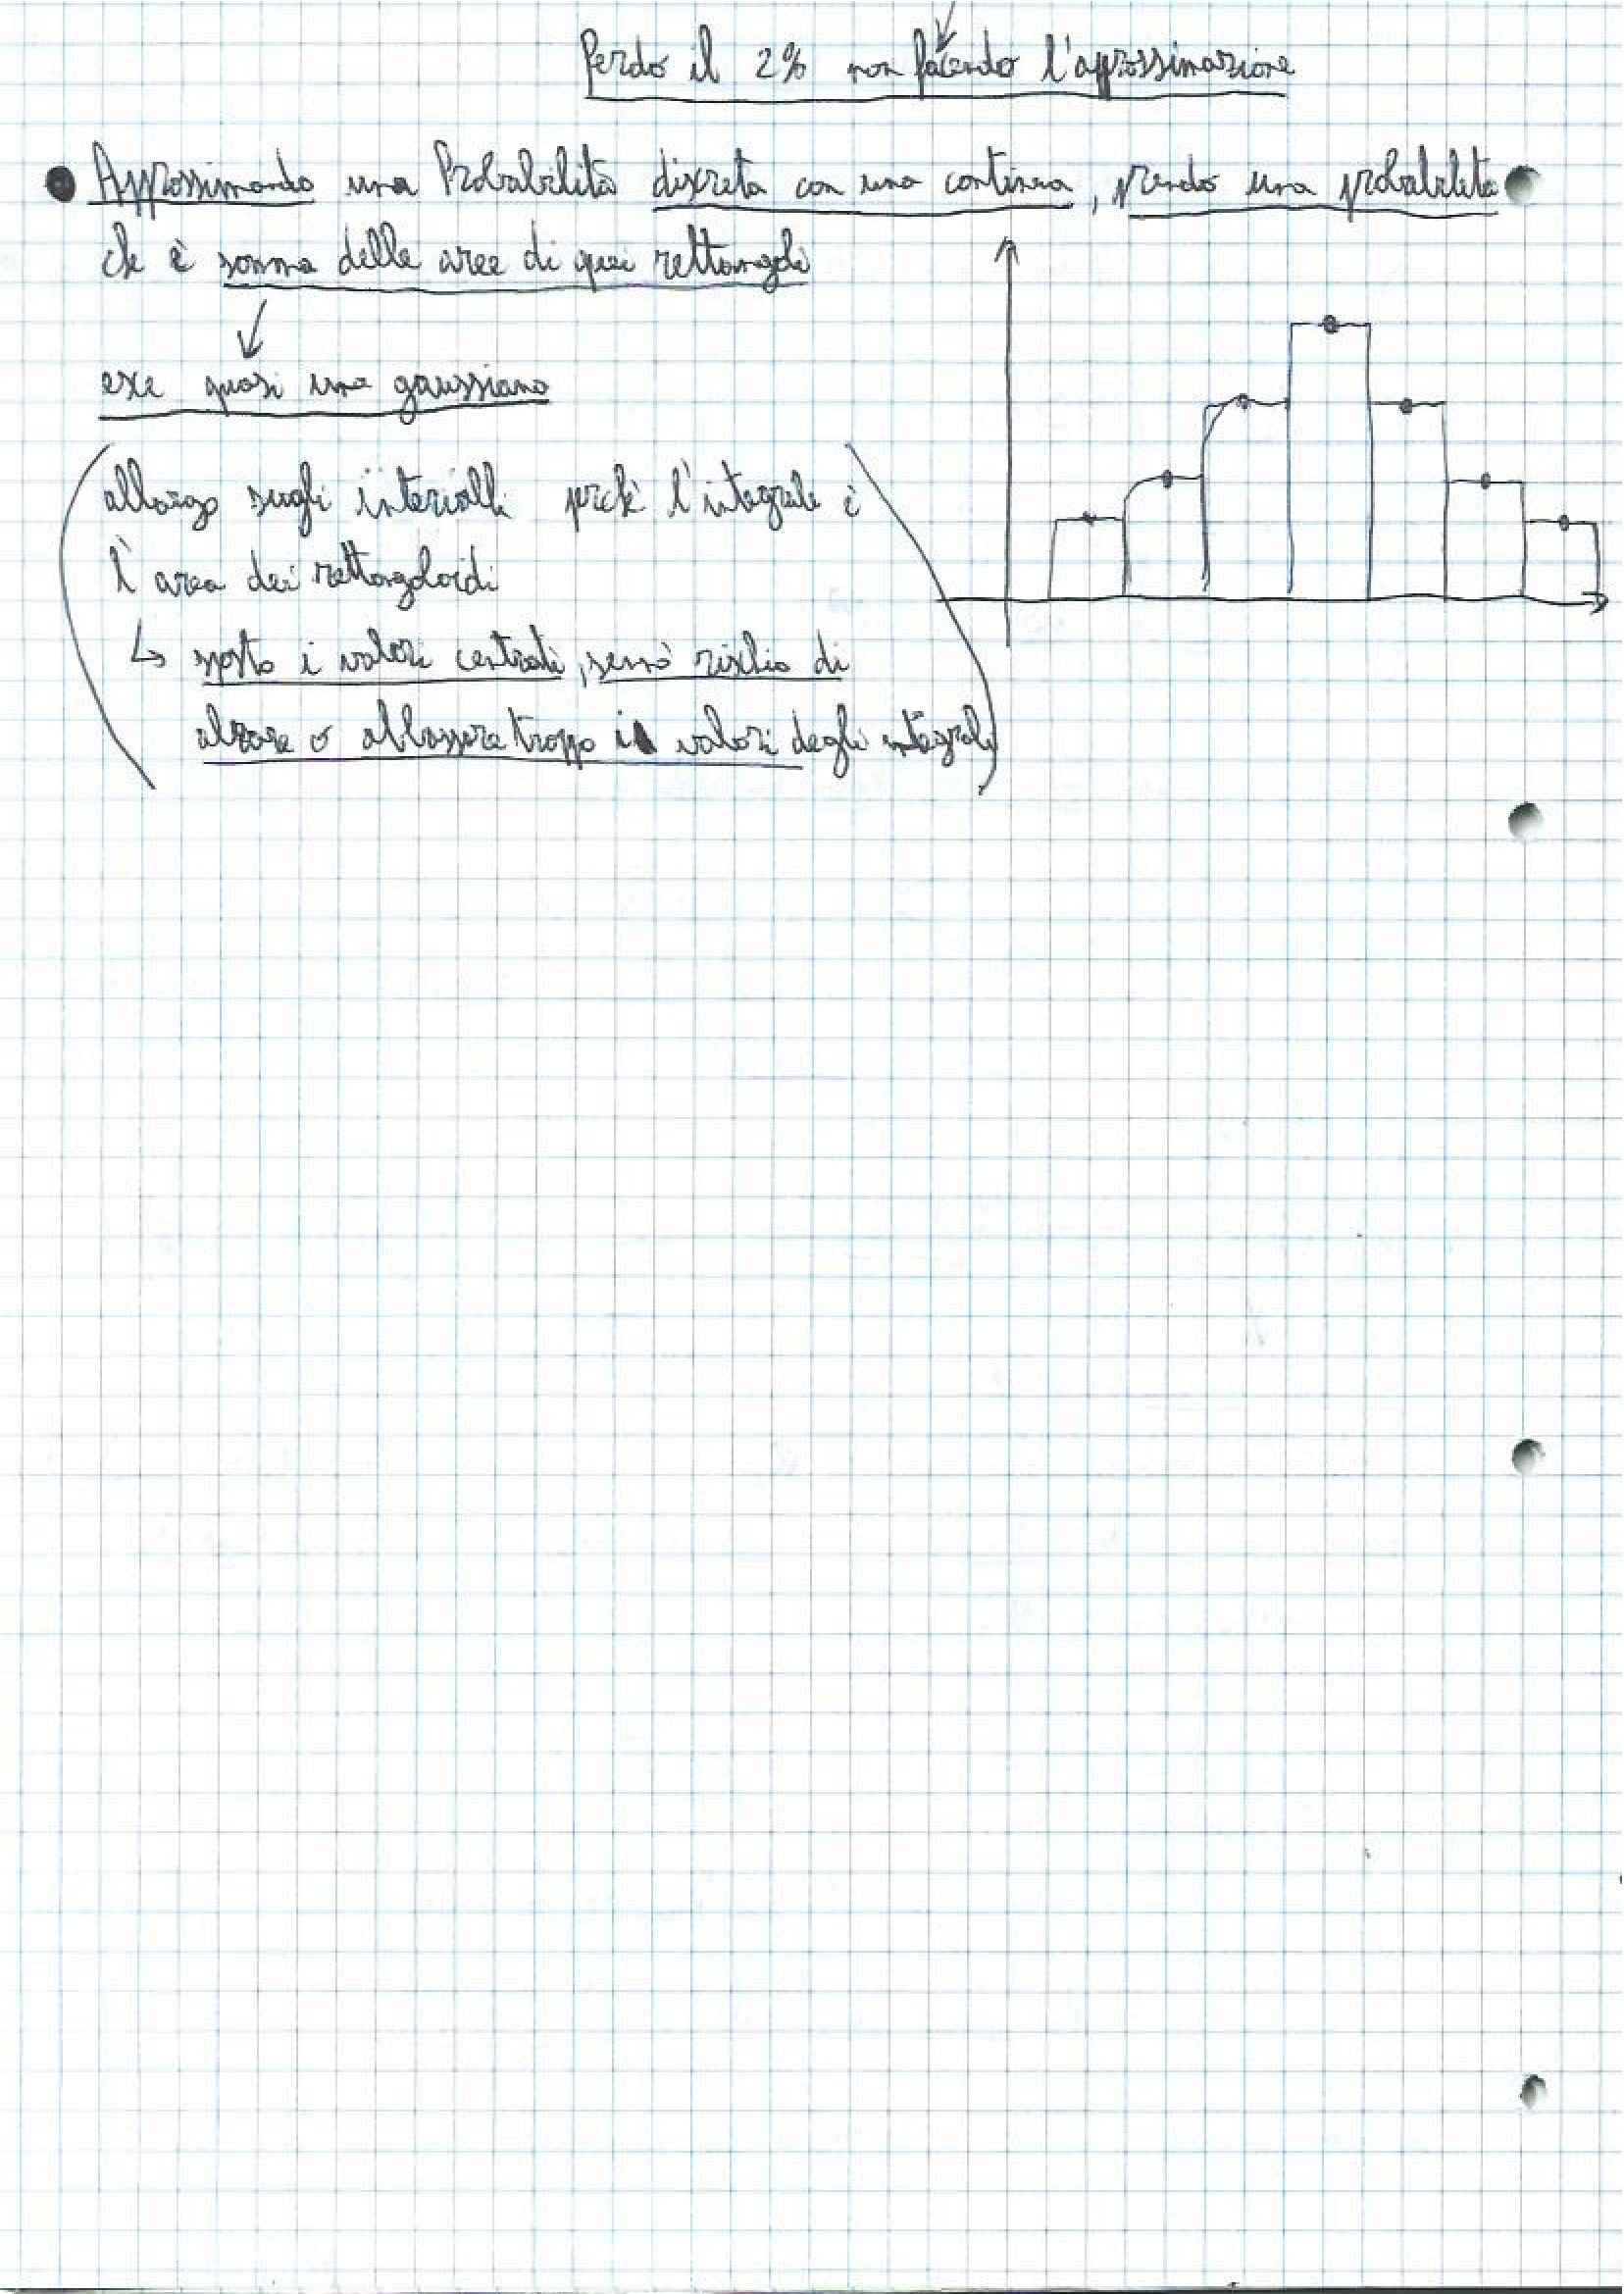 Perdo il 2% non facendo l'approssimazione
Approssimando una Probabilità discreta con una continua, prendo una probabilità
che è somma delle aree di quei rettangoli
esce quasi una gaussiana
allargo sugli intervalli perché l'integrale è
l'area dei rettangoloidi
↳ sposto i valori centrali, sennò rischio di
alzare o abbassare troppo i valori degli integrali